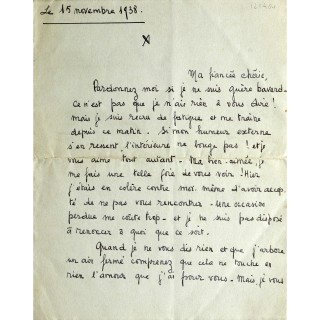 Le 15 novembre 1938.
x
Ma fiancée chérie,
Pardonnez moi si je ne suis guère bavard.
Ce n'est pas que je n'ai rien à vous dire !
mais je suis recru de fatigue et me traîne
depuis ce matin. Si mon humeur externe
s'en ressent, l'intérieure ne bouge pas ! et je
vous aime tout autant. Ma bien-aimée, je
me fais une telle joie de vous voir ! Hier
j'étais en colère contre moi-même d'avoir accep-
té de ne pas vous rencontrer. Une occasion
perdue me coûte trop. et je ne suis pas disposé
à renoncer à quoi que ce soit.
Quand je ne vous dis rien et que j'arbore
un air fermé comprenez que cela ne touche en
rien l'amour que j'ai pour vous. Mais, je vous